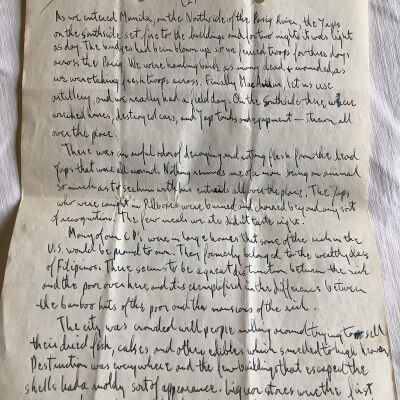 (2)
As we entered Manila, on the Northside of the Pasig River, the Japs
on the Southside set fire to the buildings and for two nights it was light
as day. The bridges had been blown up so we ferried troops for three days
across the Pasig. We were handing back as many dead & wounded as
we were taking fresh troops across. Finally MacArthur let us use
artillery, and we really had a field day. On the Southside there were
wrecked homes, destroyed cars, and Jap tanks and equipment — strewn all
over the place.
There was an awful odor of decaying and rotting flesh from the dead
Japs that were all around. Nothing reminds me of a man being an animal
so much as to see him with his entrails all over the place. The Japs
who were caught in Pillboxes were burned and charred beyond any sort
of recognition. The few meals we ate didn't taste right.
Many of our CP's were in large homes that some of the rich in the
U.S. would be proud to own. They formerly belonged to the wealthy class
of Filipinos. There seems to be a great distinction between the rich
and the poor over here and it is exemplified in the difference between
the bamboo huts of the poor and the mansions of the rich.
The city was crowded with people milling around trying to sell
their dried fish, cakes and other edibles which smelled to high heaven.
Destruction was everywhere and the few buildings that escaped the
shells had a moldy sort of appearance. Liquor stores were the first